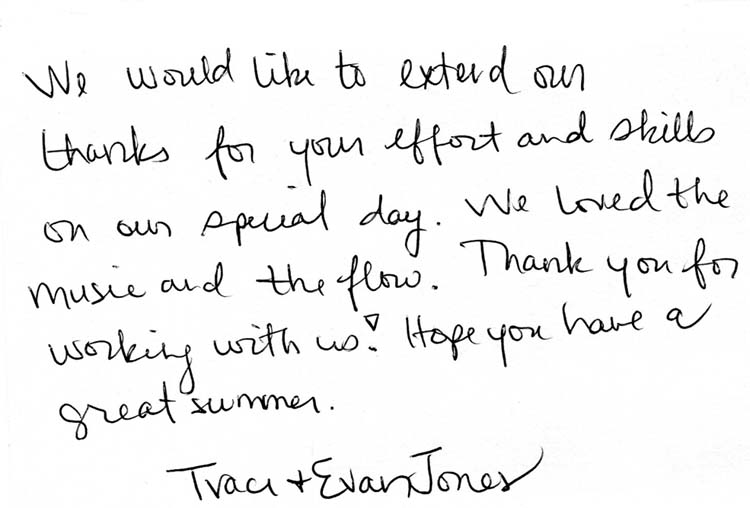 We would like to extend our
thanks for your effort and skills
on our special day. We loved the
music and the flow. Thank you for
working with us! Hope you have a
great summer.
Traci + Evan Jones